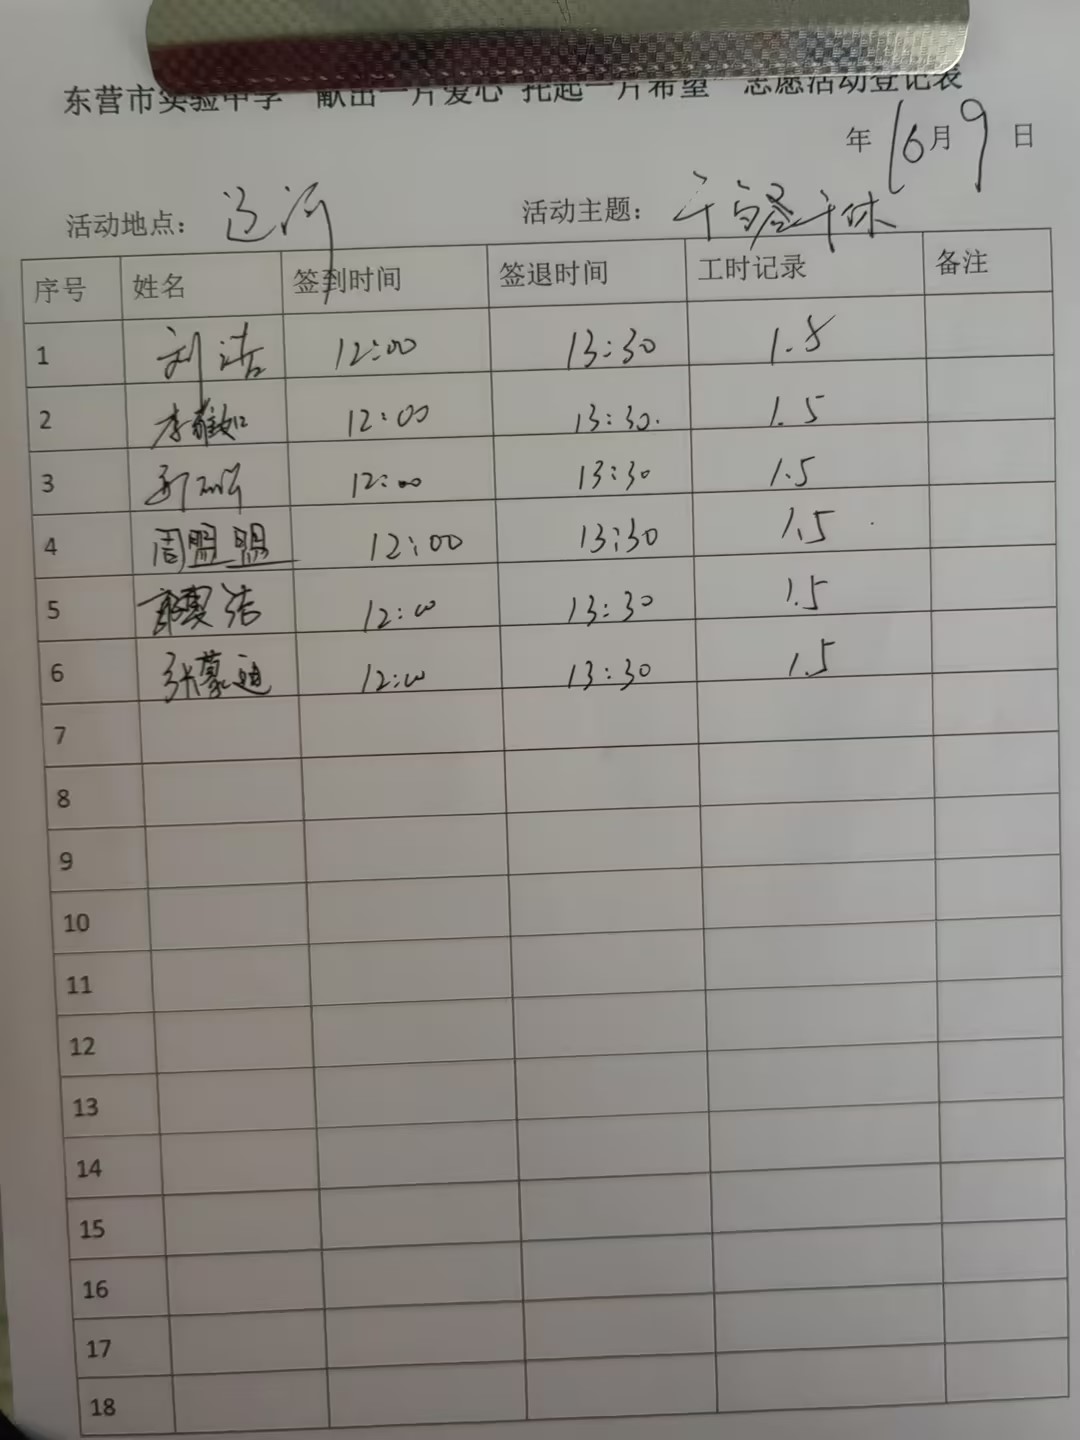 东营市实验中学“献出一片爱心 托起一片希望” 志愿活动登记表
年 10月9日
活动地点： 活动主题：
序号 姓名 签到时间 签退时间 工时记录 备注
1 刘洁 12:00 13:30 1.5
2 李 如 12:00 13:30. 1.5
3 12:00 13:30 1.5
4 周盟盟 12:00 13:30 1.5
5 洁 12:00 13:30 1.5
6 张蒙迪 12:00 13:30 1.5
7
8
9
10
11
12
13
14
15
16
17
18